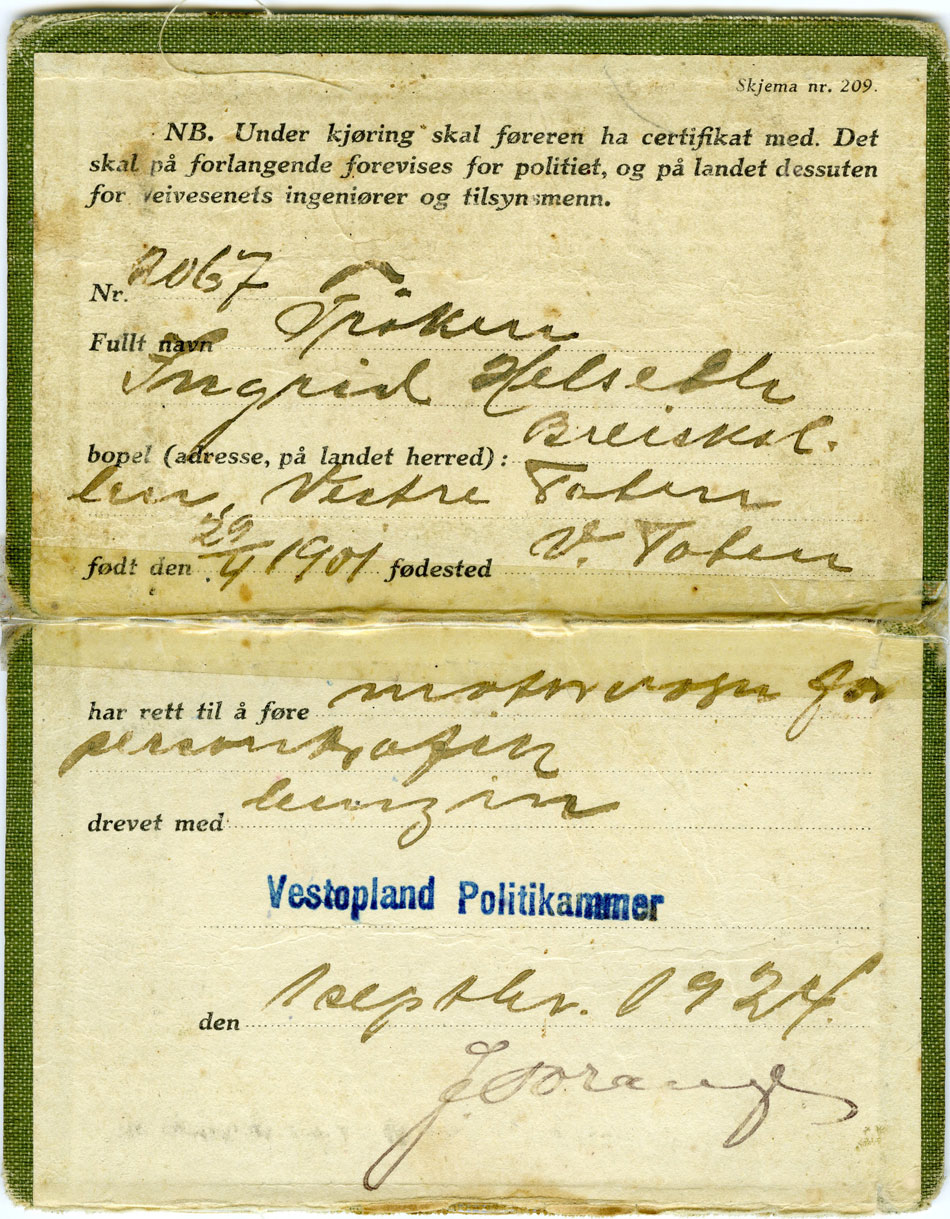 Skjema nr. 209.
NB. Under kjøring skal føreren ha certifikat med. Det
skal på forlangende forevises for politiet, og på landet dessuten
for veivesenets ingeniører og tilsynsmenn.
Nr. 2067
Fullt navn Frøken
Ingrid Helseth
bopel (adresse, på landet herred): Breiskal-
len, Vestre Toten
født den 29/4 1901 fødested V. Toten
har rett til å føre motorvogn for
persontrafik
drevet med benzin
Vestopland Politikammer
den 1 septbr. 1924.